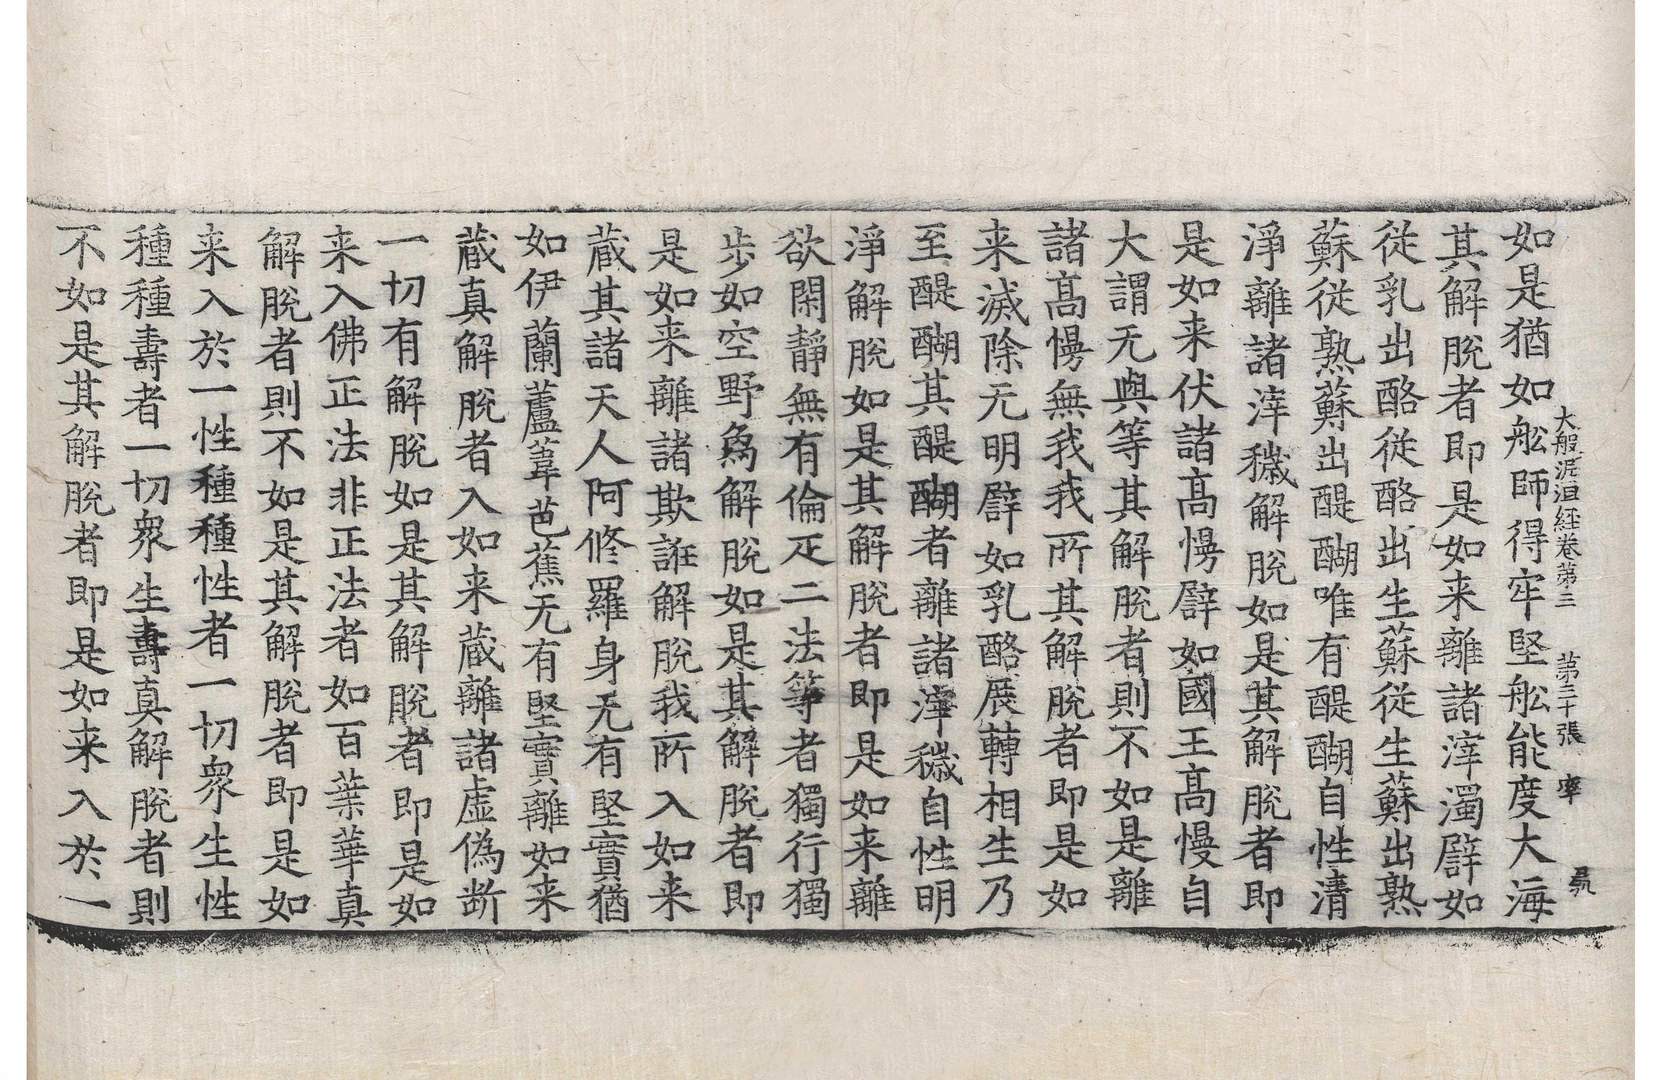 大般泥洹経卷第三 第三十張 率
如是猶如舩師得牢堅舩能度大海
其解脫者即是如来離諸滓濁譬如
從乳出酪從酪出生蘇從生蘇出熟
蘇從熟蘇出醍醐唯有醍醐自性清
淨離諸滓穢解脫如是其解脫者即
是如来伏諸髙慢譬如國王髙慢自
大謂无與等其解脫者則不如是離
諸髙慢無我我所其解脫者即是如
来滅除无明譬如乳酪展轉相生乃
至醍醐其醍醐者離諸滓穢自性明
淨解脫如是其解脫者即是如来離
欲閑靜無有倫疋二法等者獨行獨
歩如空野象解脫如是其解脫者即
是如来離諸欺誑解脫我所入如来
蔵其諸天人阿修羅身无有堅實猶
如伊蘭蘆葦芭蕉无有堅實離如来
蔵真解脫者入如来蔵離諸虛偽断
一切有解脫如是其解脫者即是如
来入佛正法非正法者如百葉華真
解脫者則不如是其解脫者即是如
来入於一性種種性者一切衆生性
種種壽者一切衆生壽真解脫者則
不如是其解脫者即是如来入於一